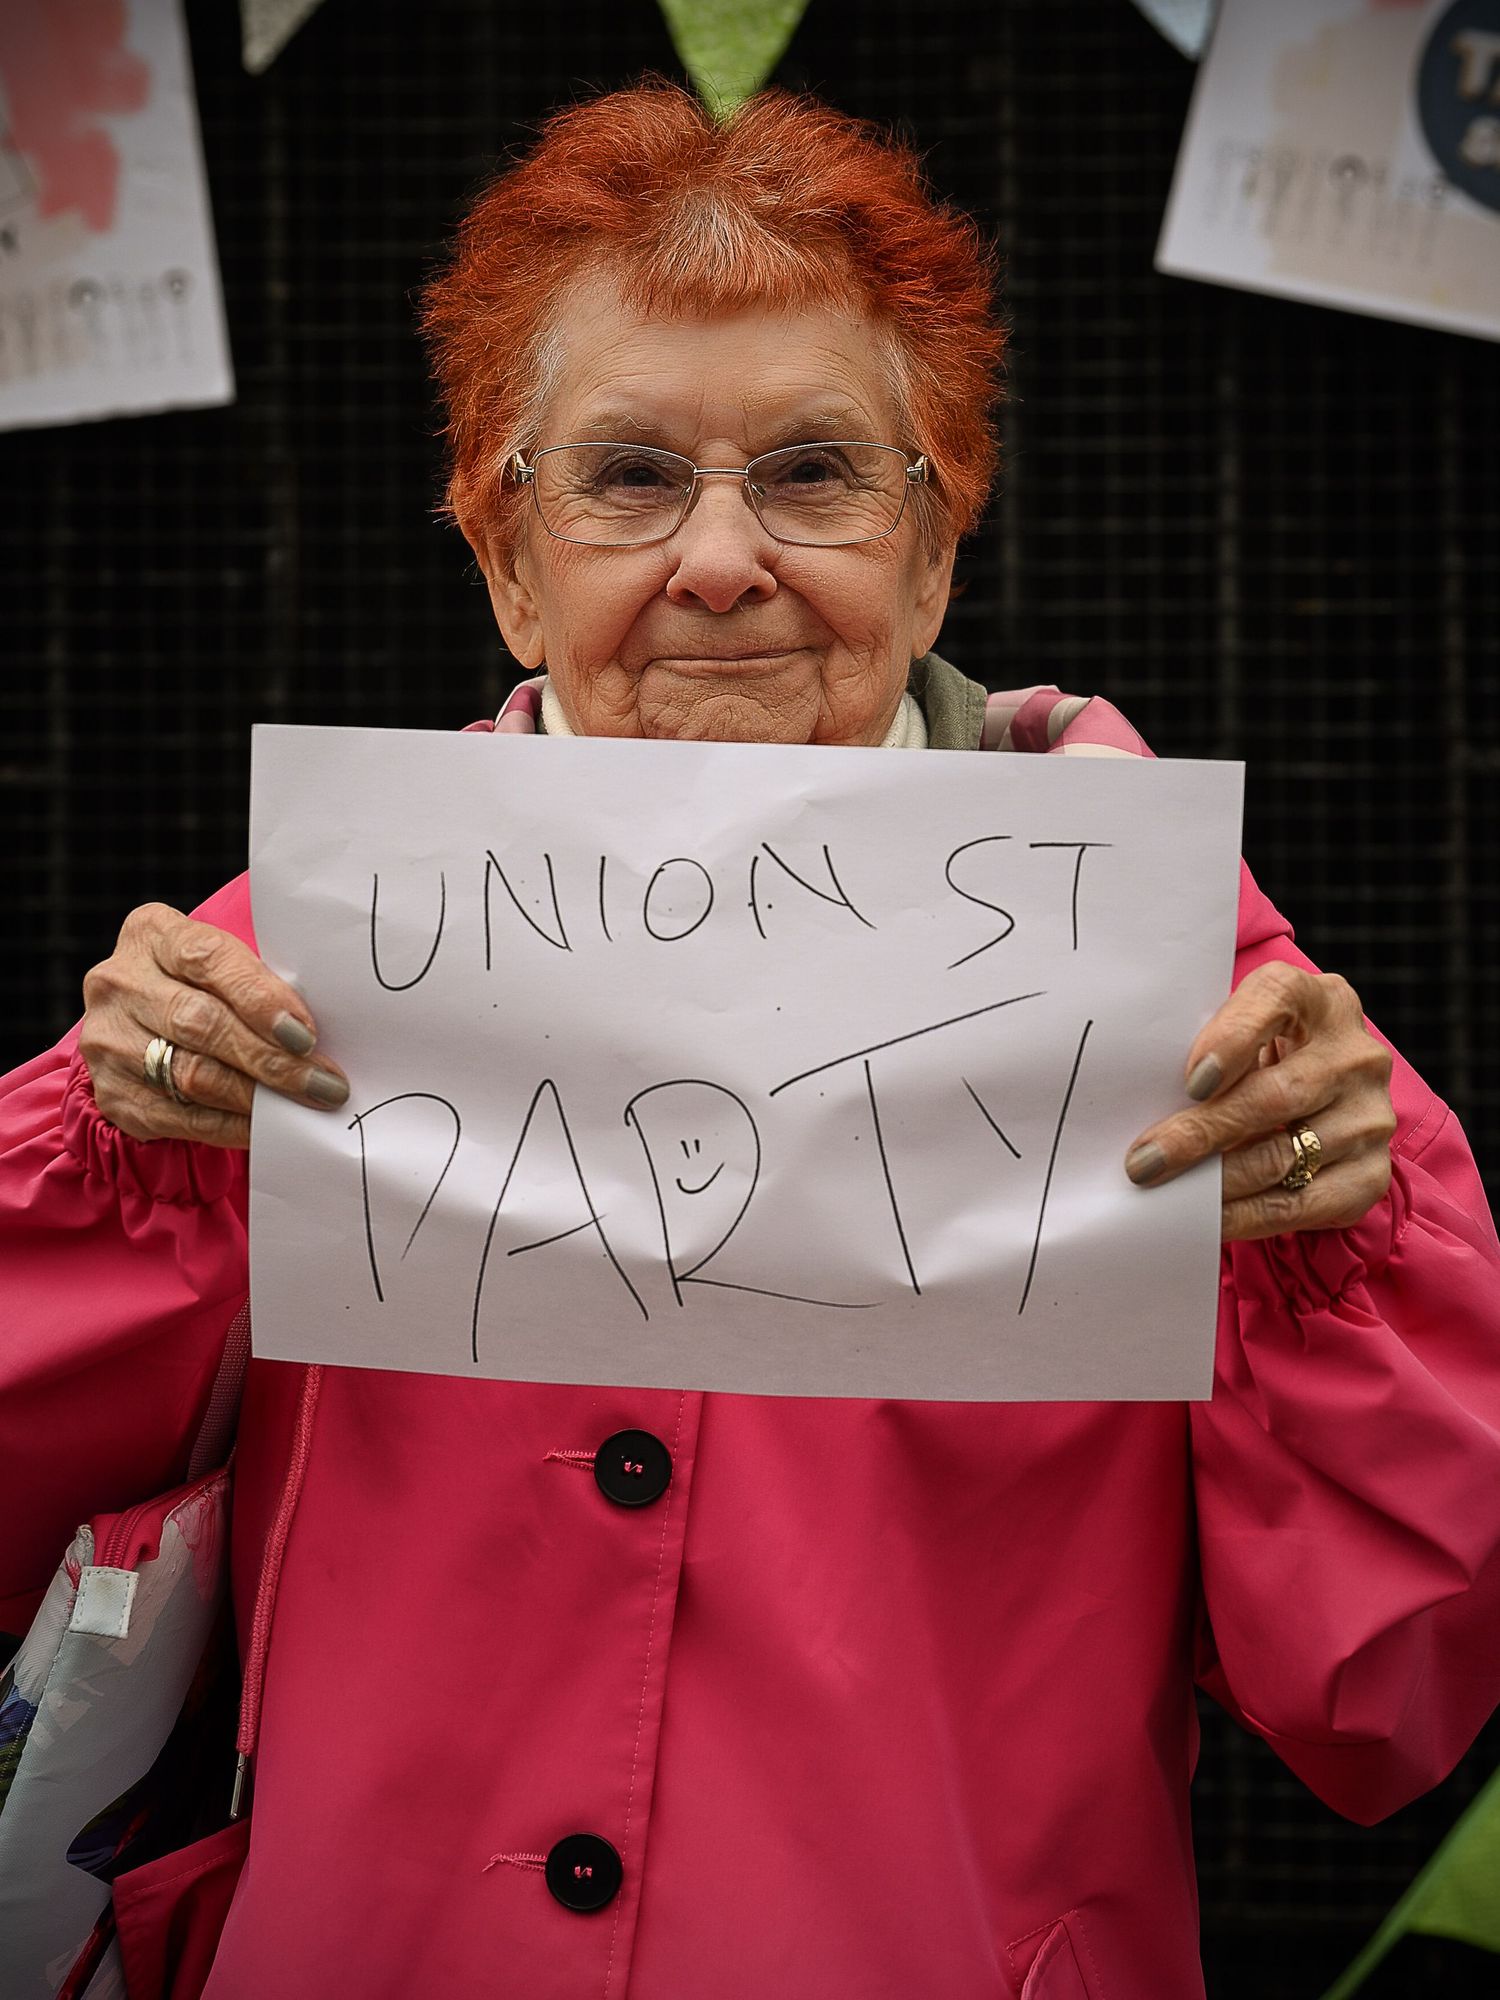 UNION ST
PARTY